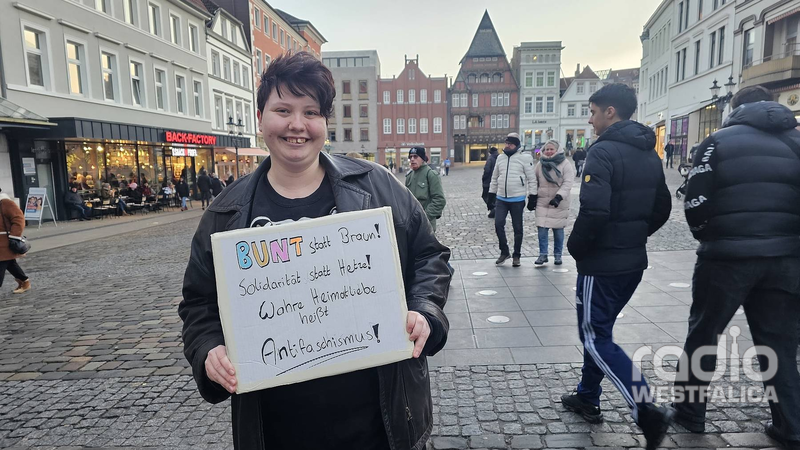 BACK-FACTORY
BUNT statt Braun!
Solidarität statt Hetze!
Wahre Heimatliebe
heißt
Antifaschismus!
radio
WESTFALICA